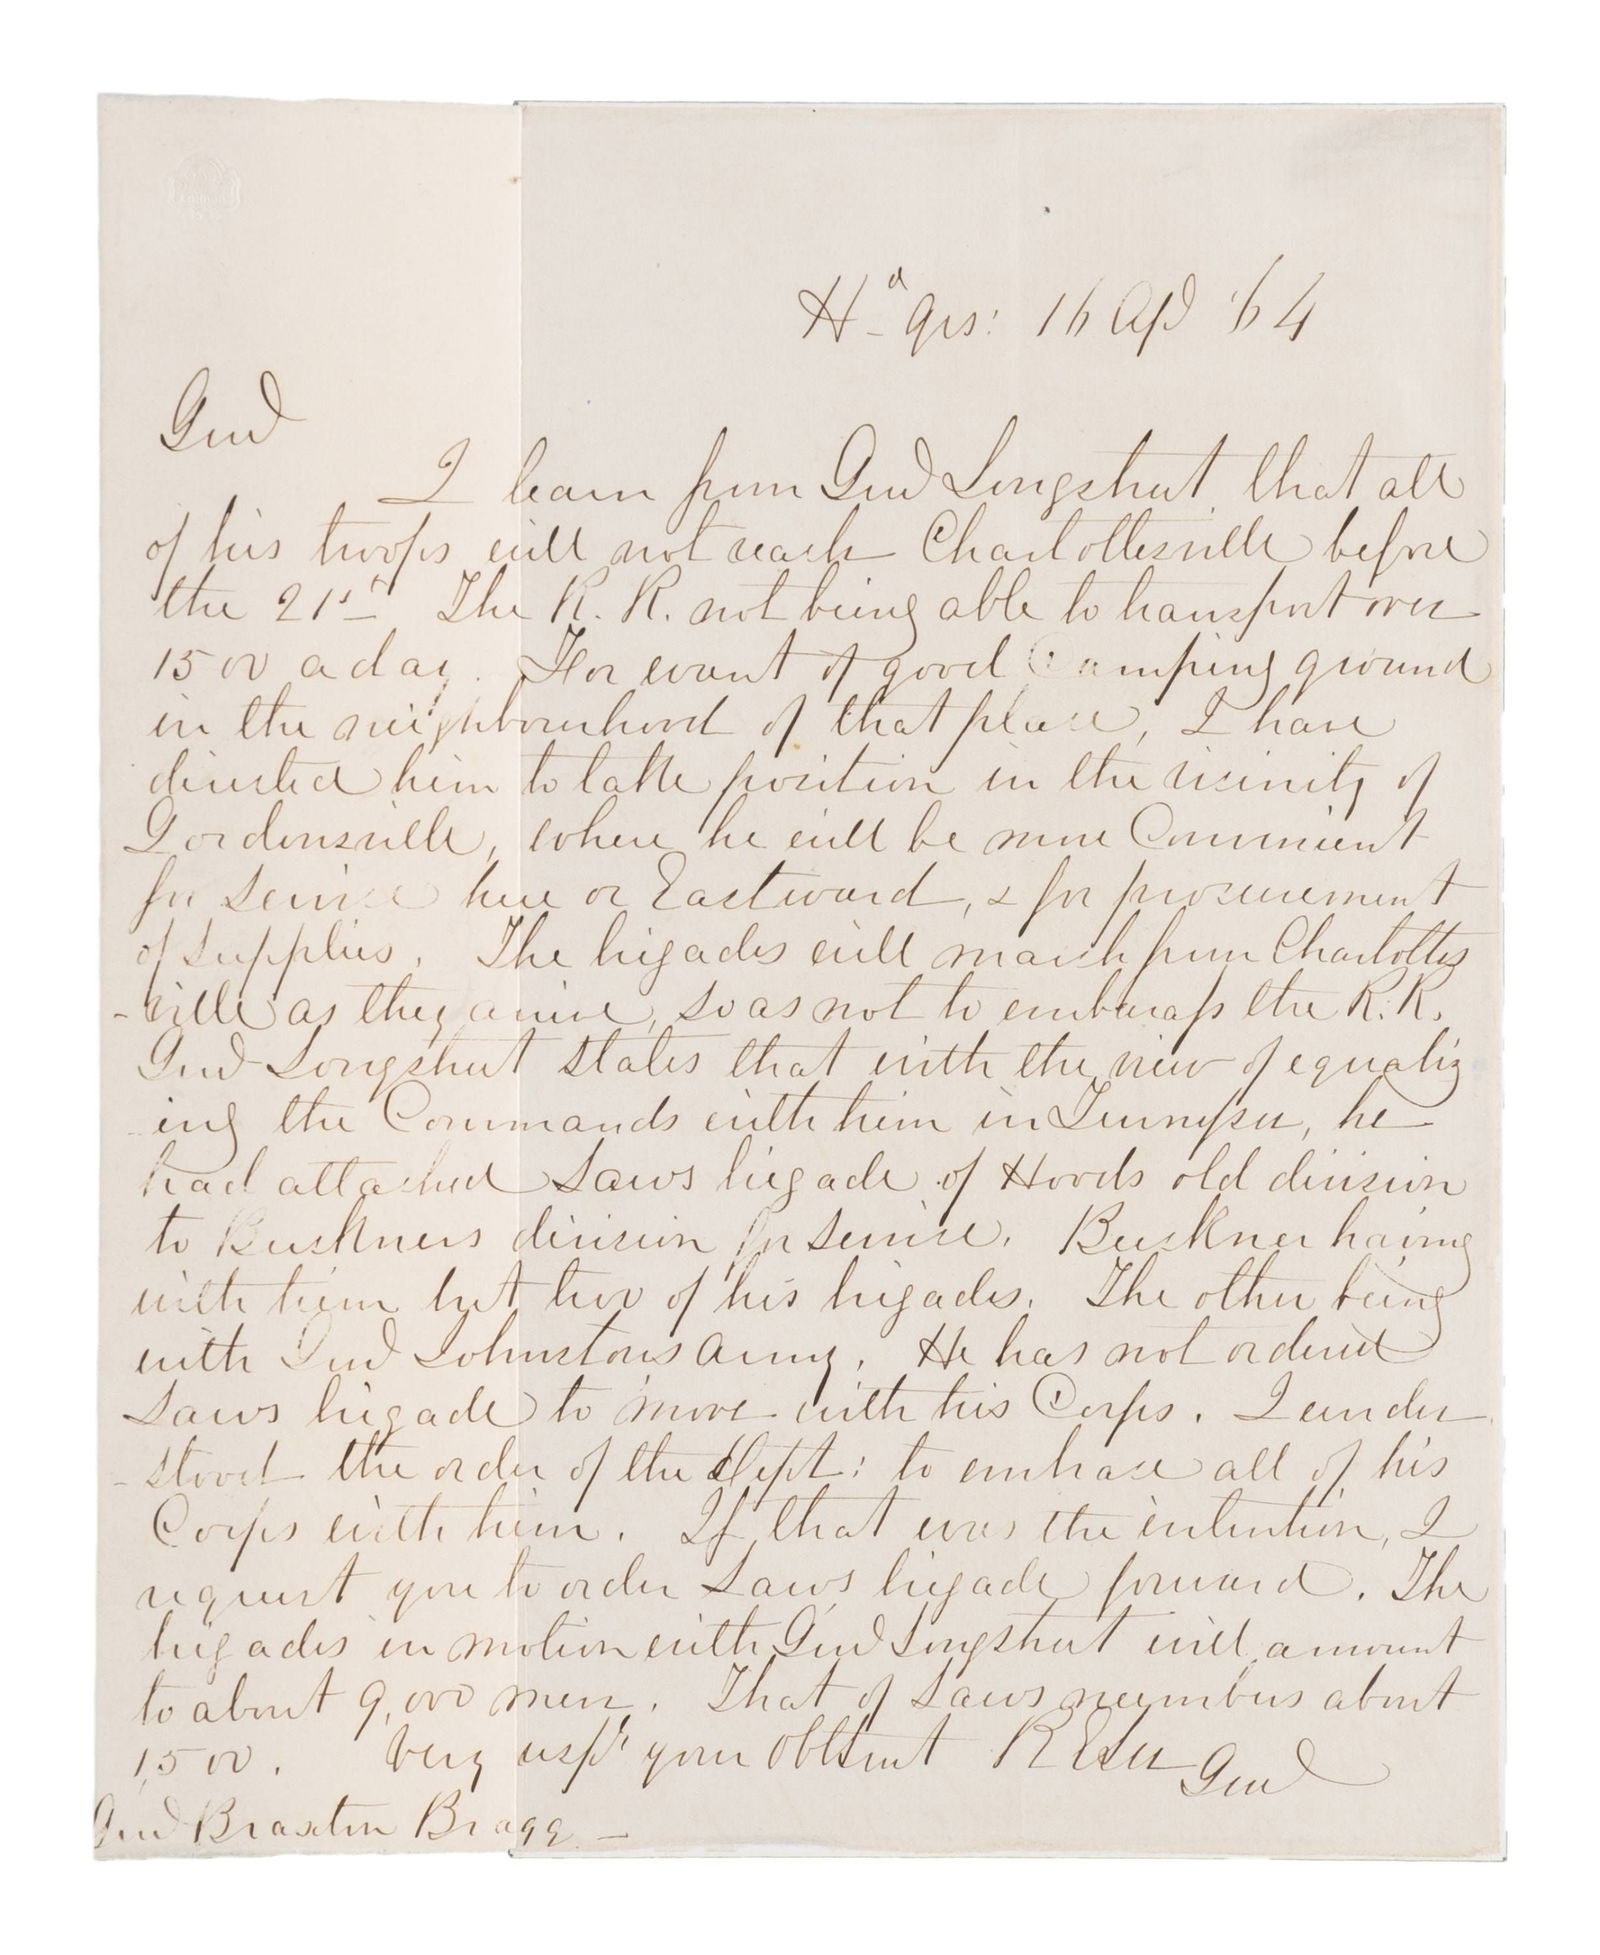 Hd qrs: 16 Apl '64
Genl
I learn from Genl Longstreet that all
of his troops will not reach Charlottesville before
the 21st The R. R. not being able to transport over
1500 a day. For want of good Camping ground
in the neighbourhood of that place, I have
directed him to take position in the vicinity of
Gordonsville, where he will be more Convenient
for service here or Eastward, & for procurement
of supplies. The brigades will march from Charlottes
-ville as they arrive, so as not to embarass the R. R.
Genl Longstreet states that with the view of equaliz
-ing the Commands with him in Tennessee, he
had attached Laws brigade of Hoods old division
to Buckners division for service. Buckner having
with him but two of his brigades. The other being
with Genl Johnstons army. He has not ordered
Laws brigade to move with his Corps. I under
-stood the order of the Dept: to embrace all of his
Corps with him. If that was the intention, I
request you to order Laws brigade forward. The
brigades in motion with Genl Longstreet will amount
to about 9,000 men. That of Laws numbers about
1,500. Very respt your obt servt R E Lee
Genl
Genl Braxton Bragg —